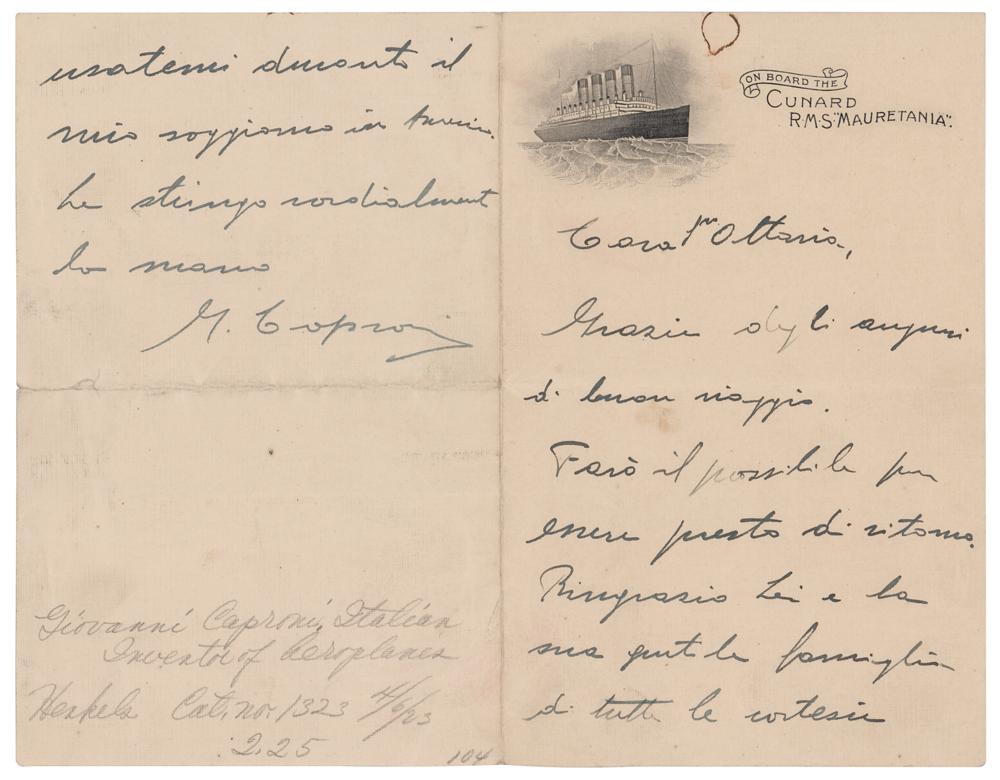 ON BOARD THE
CUNARD
R.M.S. "MAURETANIA".
Cara Ottavia,
Grazie degli auguri
di buon viaggio.
Farò il possibile per
essere presto di ritorno.
Ringrazio Lei e la
sua gentile famiglia
di tutte le cortesie
usatemi durante il
mio soggiorno in
Le stringo cordialment
la mano
G. Caproni
Giovanni Caproni, Italian
Inventor of Aeroplanes
Cat. no. 1323 4/6/23
2.25
104